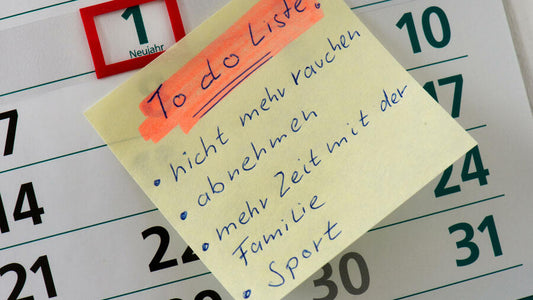 1
Neujahr
10
To do Liste!
17
7
• nicht mehr rauchen
• abnehmen
• mehr Zeit mit der
Familie
• Sport
14
22
24
21
29
30
31